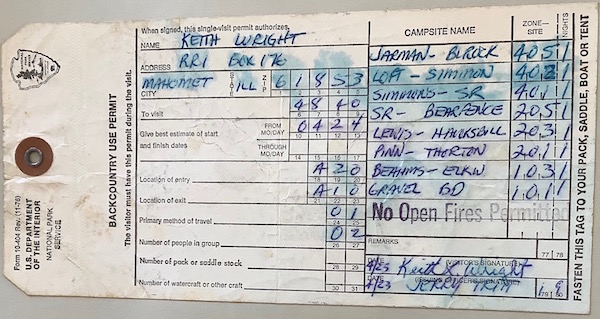 When signed, this single-visit permit authorizes,
NAME KEITH WRIGHT
ADDRESS RR1 BOX 176
MAHOMET STATE ILL ZIP 61853
CITY
To visit 4840
Give best estimate of start and finish dates
FROM MO/DAY 0424
THROUGH MO/DAY
Location of entry A20
Location of exit A10
Primary method of travel 01
Number of people in group 02
Number of pack or saddle stock
Number of watercraft or other craft
BACKCOUNTRY USE PERMIT
The visitor must have this permit during the visit.
Form 10-404 Rev. (11-76)
U.S. DEPARTMENT
OF THE INTERIOR
NATIONAL PARK
SERVICE
CAMPSITE NAME ZONE-SITE NIGHTS
JARMAN- 405 1
LOFT- SIMMON 402 1
SIMMONS- SR 401 1
SR- BEARFENCE 205 1
LEWIS- HAWKSBILL 203 1
PINN- THORTON 201 1
BEHAHMS- ELKW 103 1
GRAVEL 101 1
No Open Fires Permitted
REMARKS
VISITOR'S SIGNATURE
4/23 Keith L Wright
4/23 JERRY
FASTEN THIS TAG TO YOUR PACK, SADDLE, BOAT OR TENT